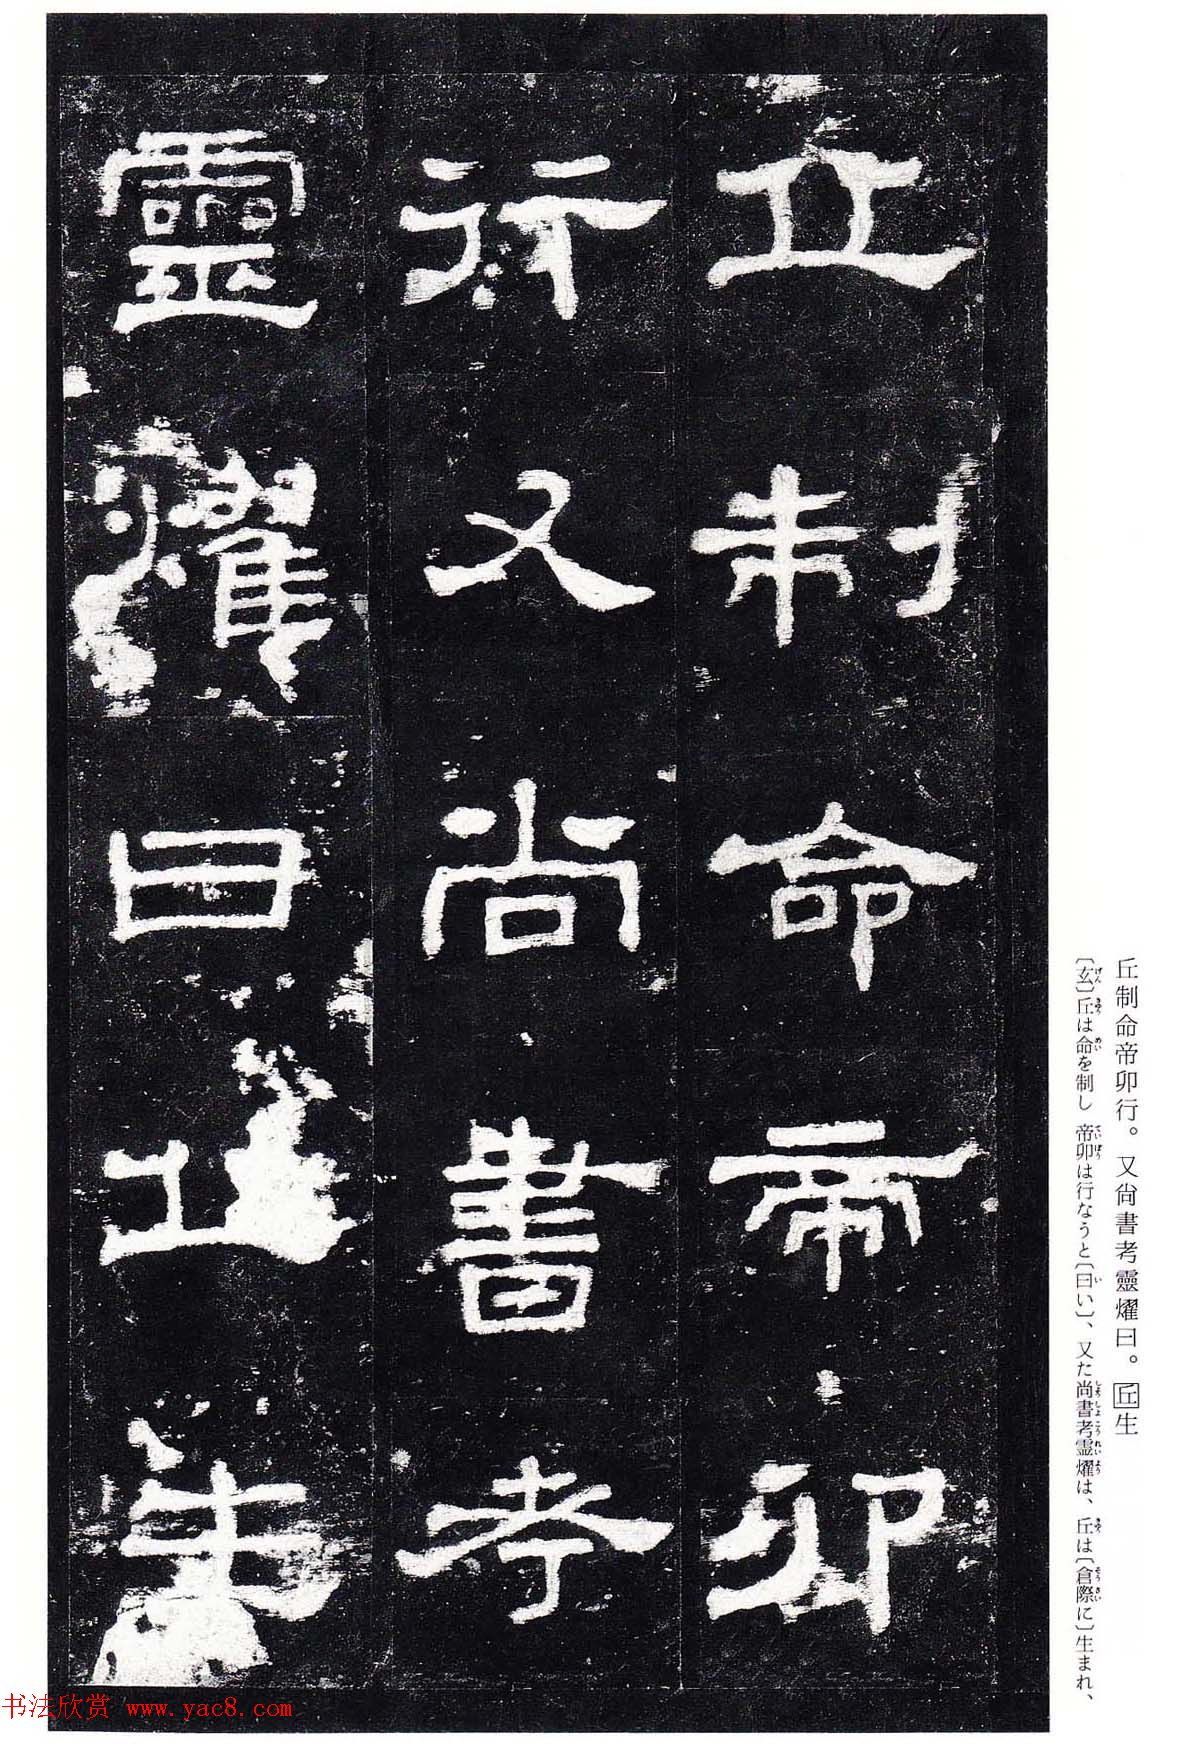 丘制命帝卯
行又尚書考
靈燿曰丘生
丘制命帝卯行。又尙書考靈燿曰。丘生
〔玄〕丘は命を制し 帝卯は行なうと〔曰い〕、又た尚書考霊燿は、丘は〔倉際に〕生まれ、
书法欣赏 www.yac8.com